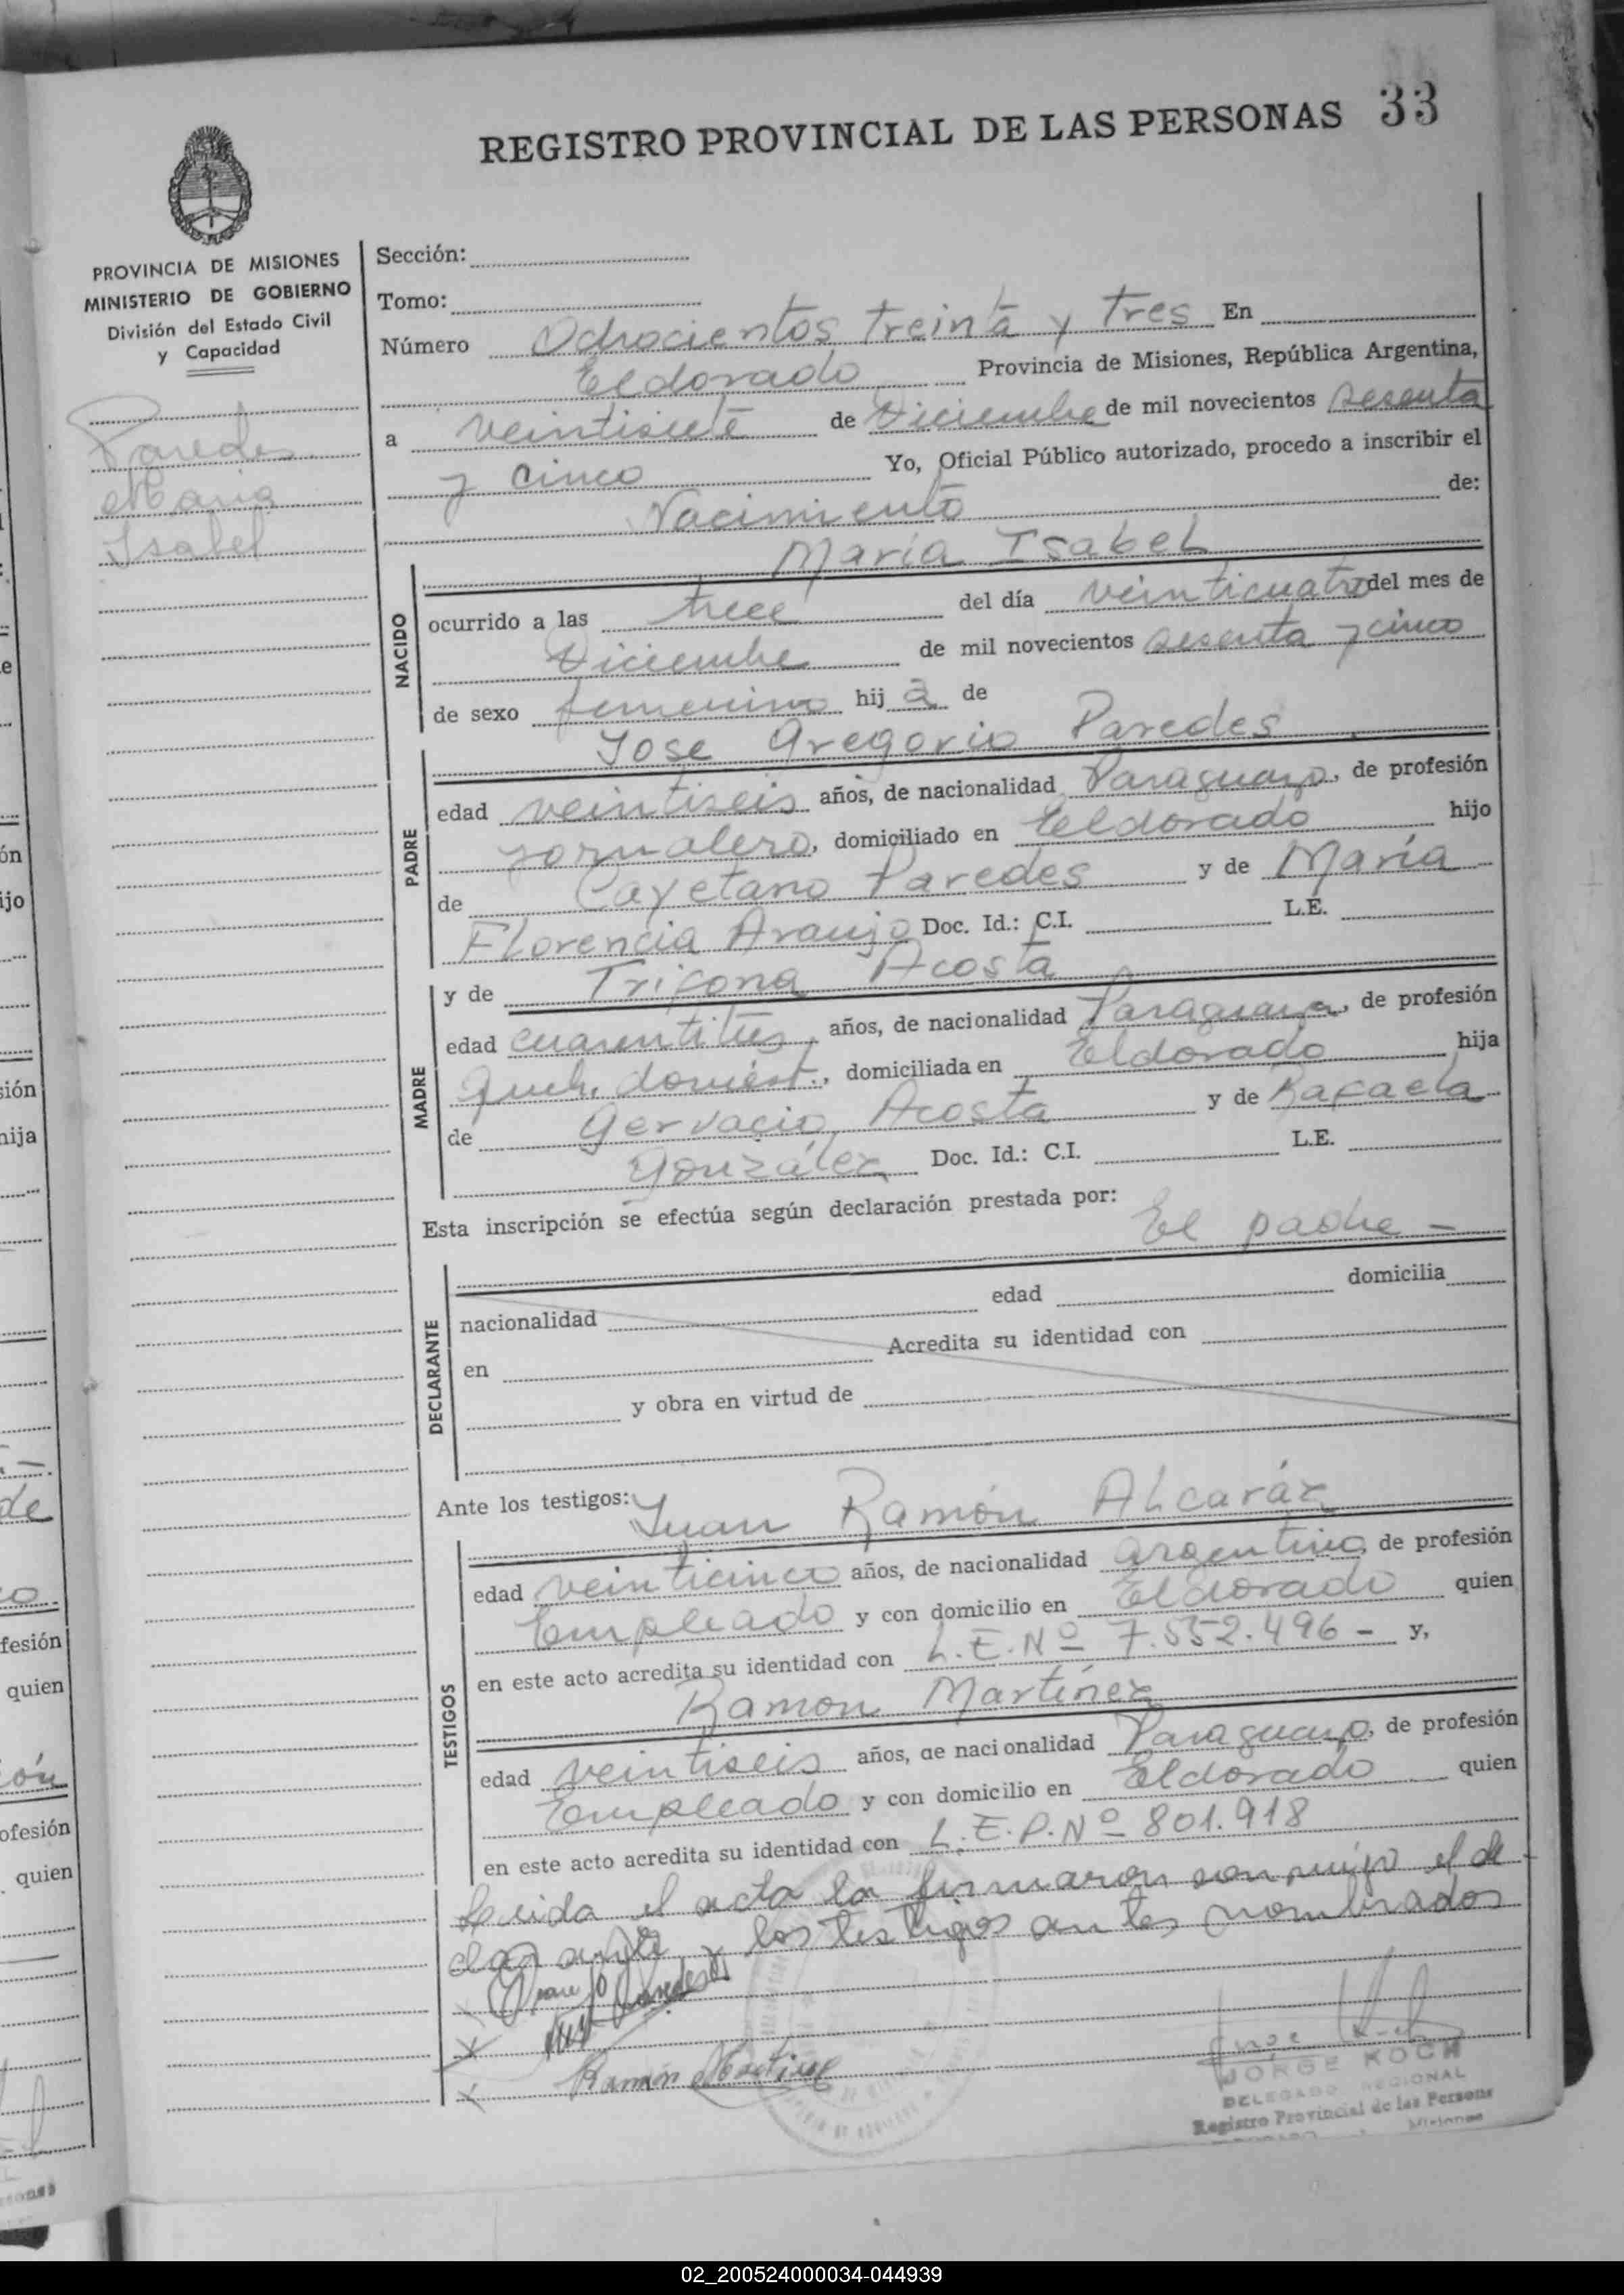 REGISTRO PROVINCIAL DE LAS PERSONAS 33
PROVINCIA DE MISIONES
MINISTERIO DE GOBIERNO
División del Estado Civil
y Capacidad
Paredes
Maria
Isabel
Sección:
Tomo:
Número Ochocientos treinta y tres En
Eldorado Provincia de Misiones, República Argentina,
a veintisiete de Diciembre de mil novecientos sesenta
y cinco Yo, Oficial Público autorizado, procedo a inscribir el
Nacimiento de:
María Isabel
NACIDO
ocurrido a las trece del día veinticuatro del mes de
Diciembre de mil novecientos sesenta y cinco
de sexo femenino hij a de
Jose Gregorio Paredes
PADRE
edad veintiseis años, de nacionalidad Paraguayo, de profesión
jornalero, domiciliado en Eldorado hijo
de Cayetano Paredes y de María
Florencia Araujo Doc. Id.: C.I. L.E.
y de Trifona Acosta
MADRE
edad cuarentitres años, de nacionalidad Paraguaya, de profesión
Queh. domést., domiciliada en Eldorado hija
de Gervacio Acosta y de Rafaela
González Doc. Id.: C.I. L.E.
Esta inscripción se efectúa según declaración prestada por:
El padre -
DECLARANTE
nacionalidad edad domicilia
en Acredita su identidad con
y obra en virtud de
Ante los testigos: Juan Ramón Alcaráz
TESTIGOS
edad veinticinco años, de nacionalidad argentino, de profesión
Empleado y con domicilio en Eldorado quien
en este acto acredita su identidad con L.E.Nº 7.552.496 - y,
Ramon Martínez
edad veintiseis años, de nacionalidad Paraguayo, de profesión
Empleado y con domicilio en Eldorado quien
en este acto acredita su identidad con L.E.P.Nº 801.918
Leida el acta la firmaron conmigo el de-
clarante y los testigos antes nombrados
Paredes
Ramón Martinez
JORGE KOCH
DELEGADO REGIONAL
Registro Provincial de las Persons
Misiones
02_200524000034-044939